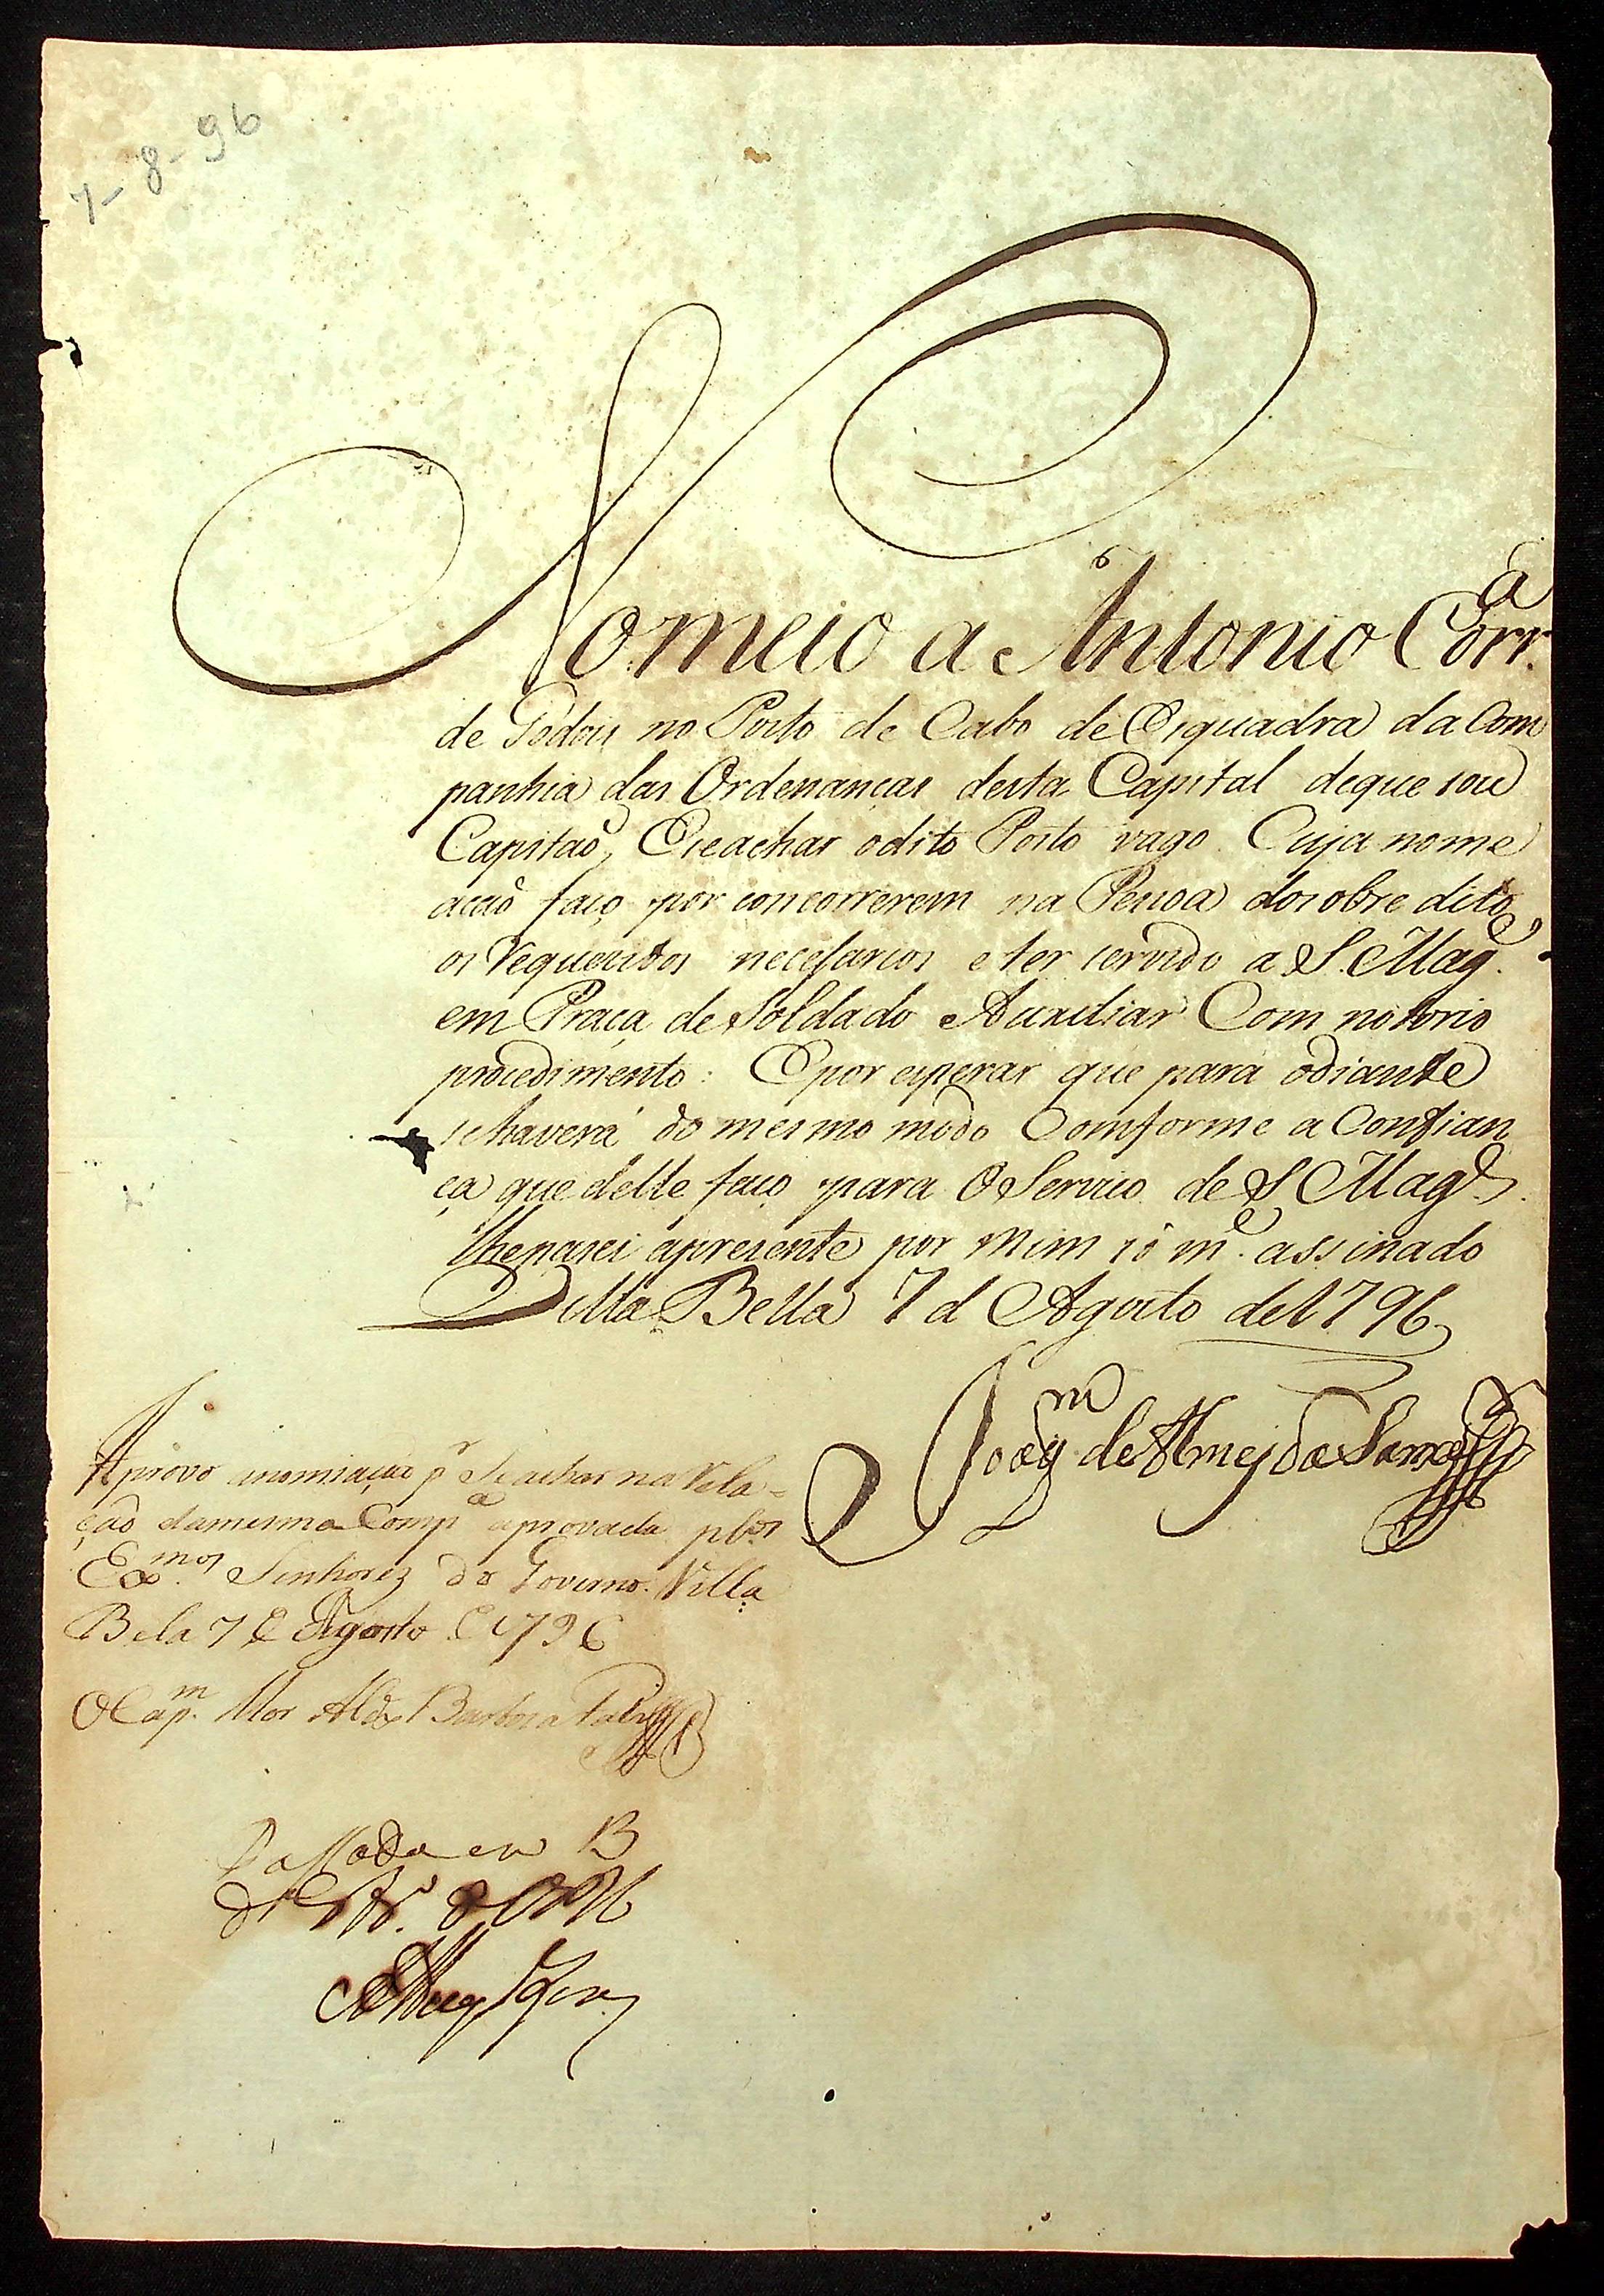 7-8-96
Nomeio a Antonio Corr.ª
de Godois no Posto de Cabo de Esquadra da Com
panhia das Ordenanças desta Capital deque sou
Capitaõ, Ese achar odito Posto vago. Cuja nome
acaõ faço por concorrerem na Pesoa dosobre dito
os Requesitos necesarios eter servido a S. Mag.e
em Praça de Soldado Auxiliar Com notorio
procedimento: Epor esperar que para odiante
sehaverá do mesmo modo Comforme a Confian
ça que delle faço para O Servico de S Mag.e
lhepasei apresente por mim só m.e assinado
Villa Bella 7 d Agosto de 1796
Joaq.m de Almejda
Aprovo anomiação p.r Se achar na Rela=
ção damesma Comp.ª aprovada pelos
Ex.mos Senhorez do Governo. Villa
Bela 7 de Agosto de 1796
O Cap.m Mor Alex Barbosa
Passada em B